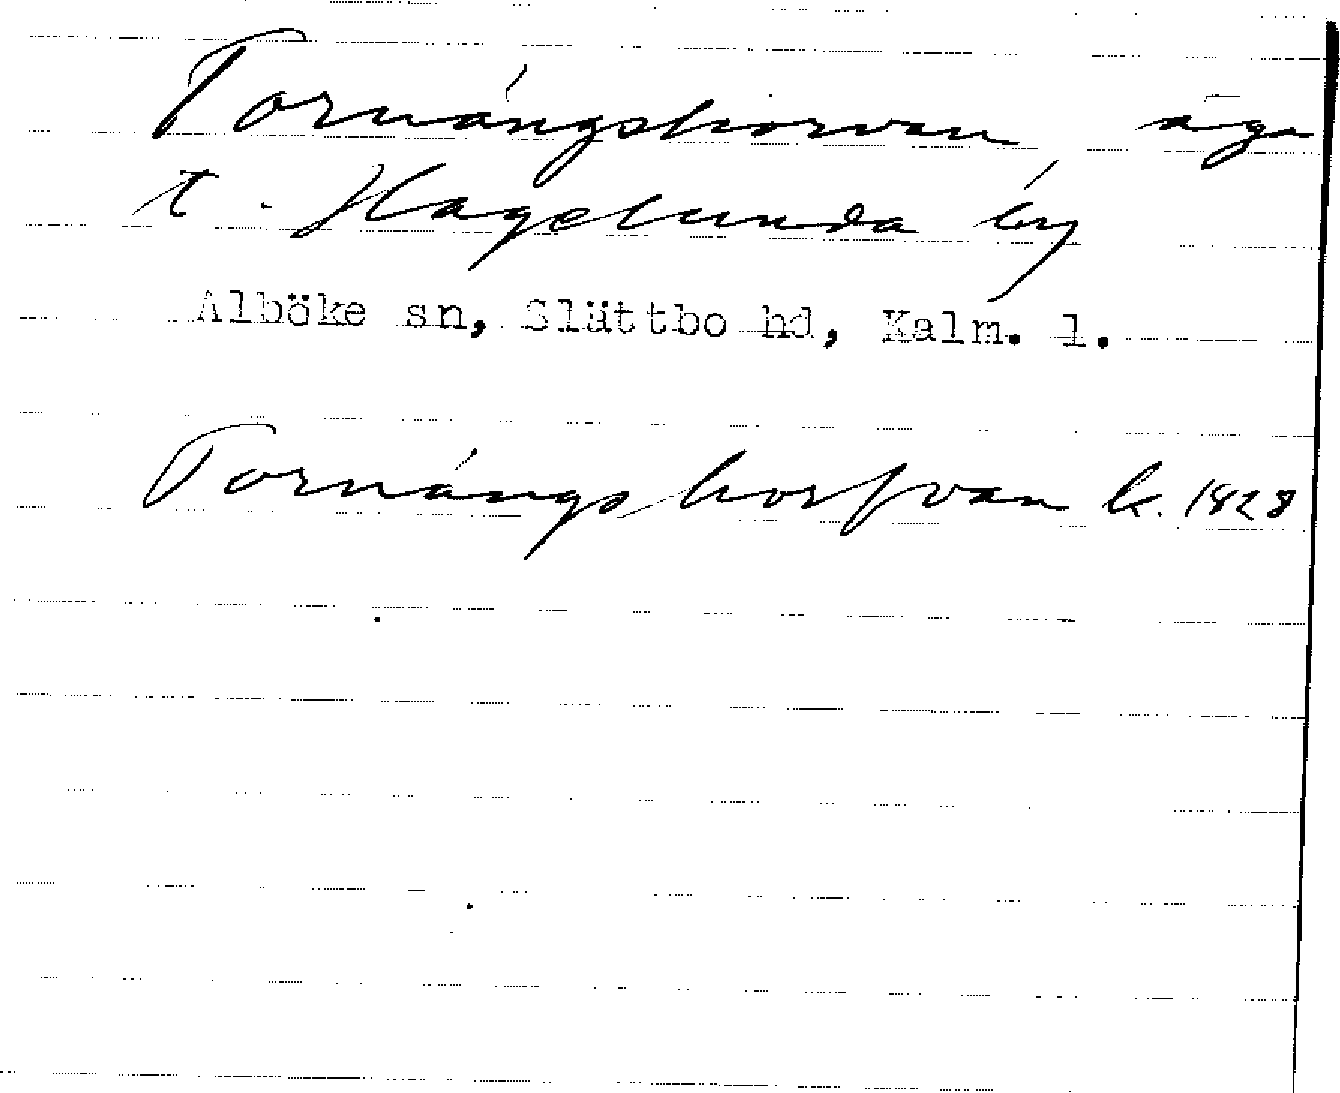 Tornängshorvan, äga
t. Hagelunda by
Alböke sn, Slättbo hd, Kalm. l.
Tornängs horfvan k. 1828